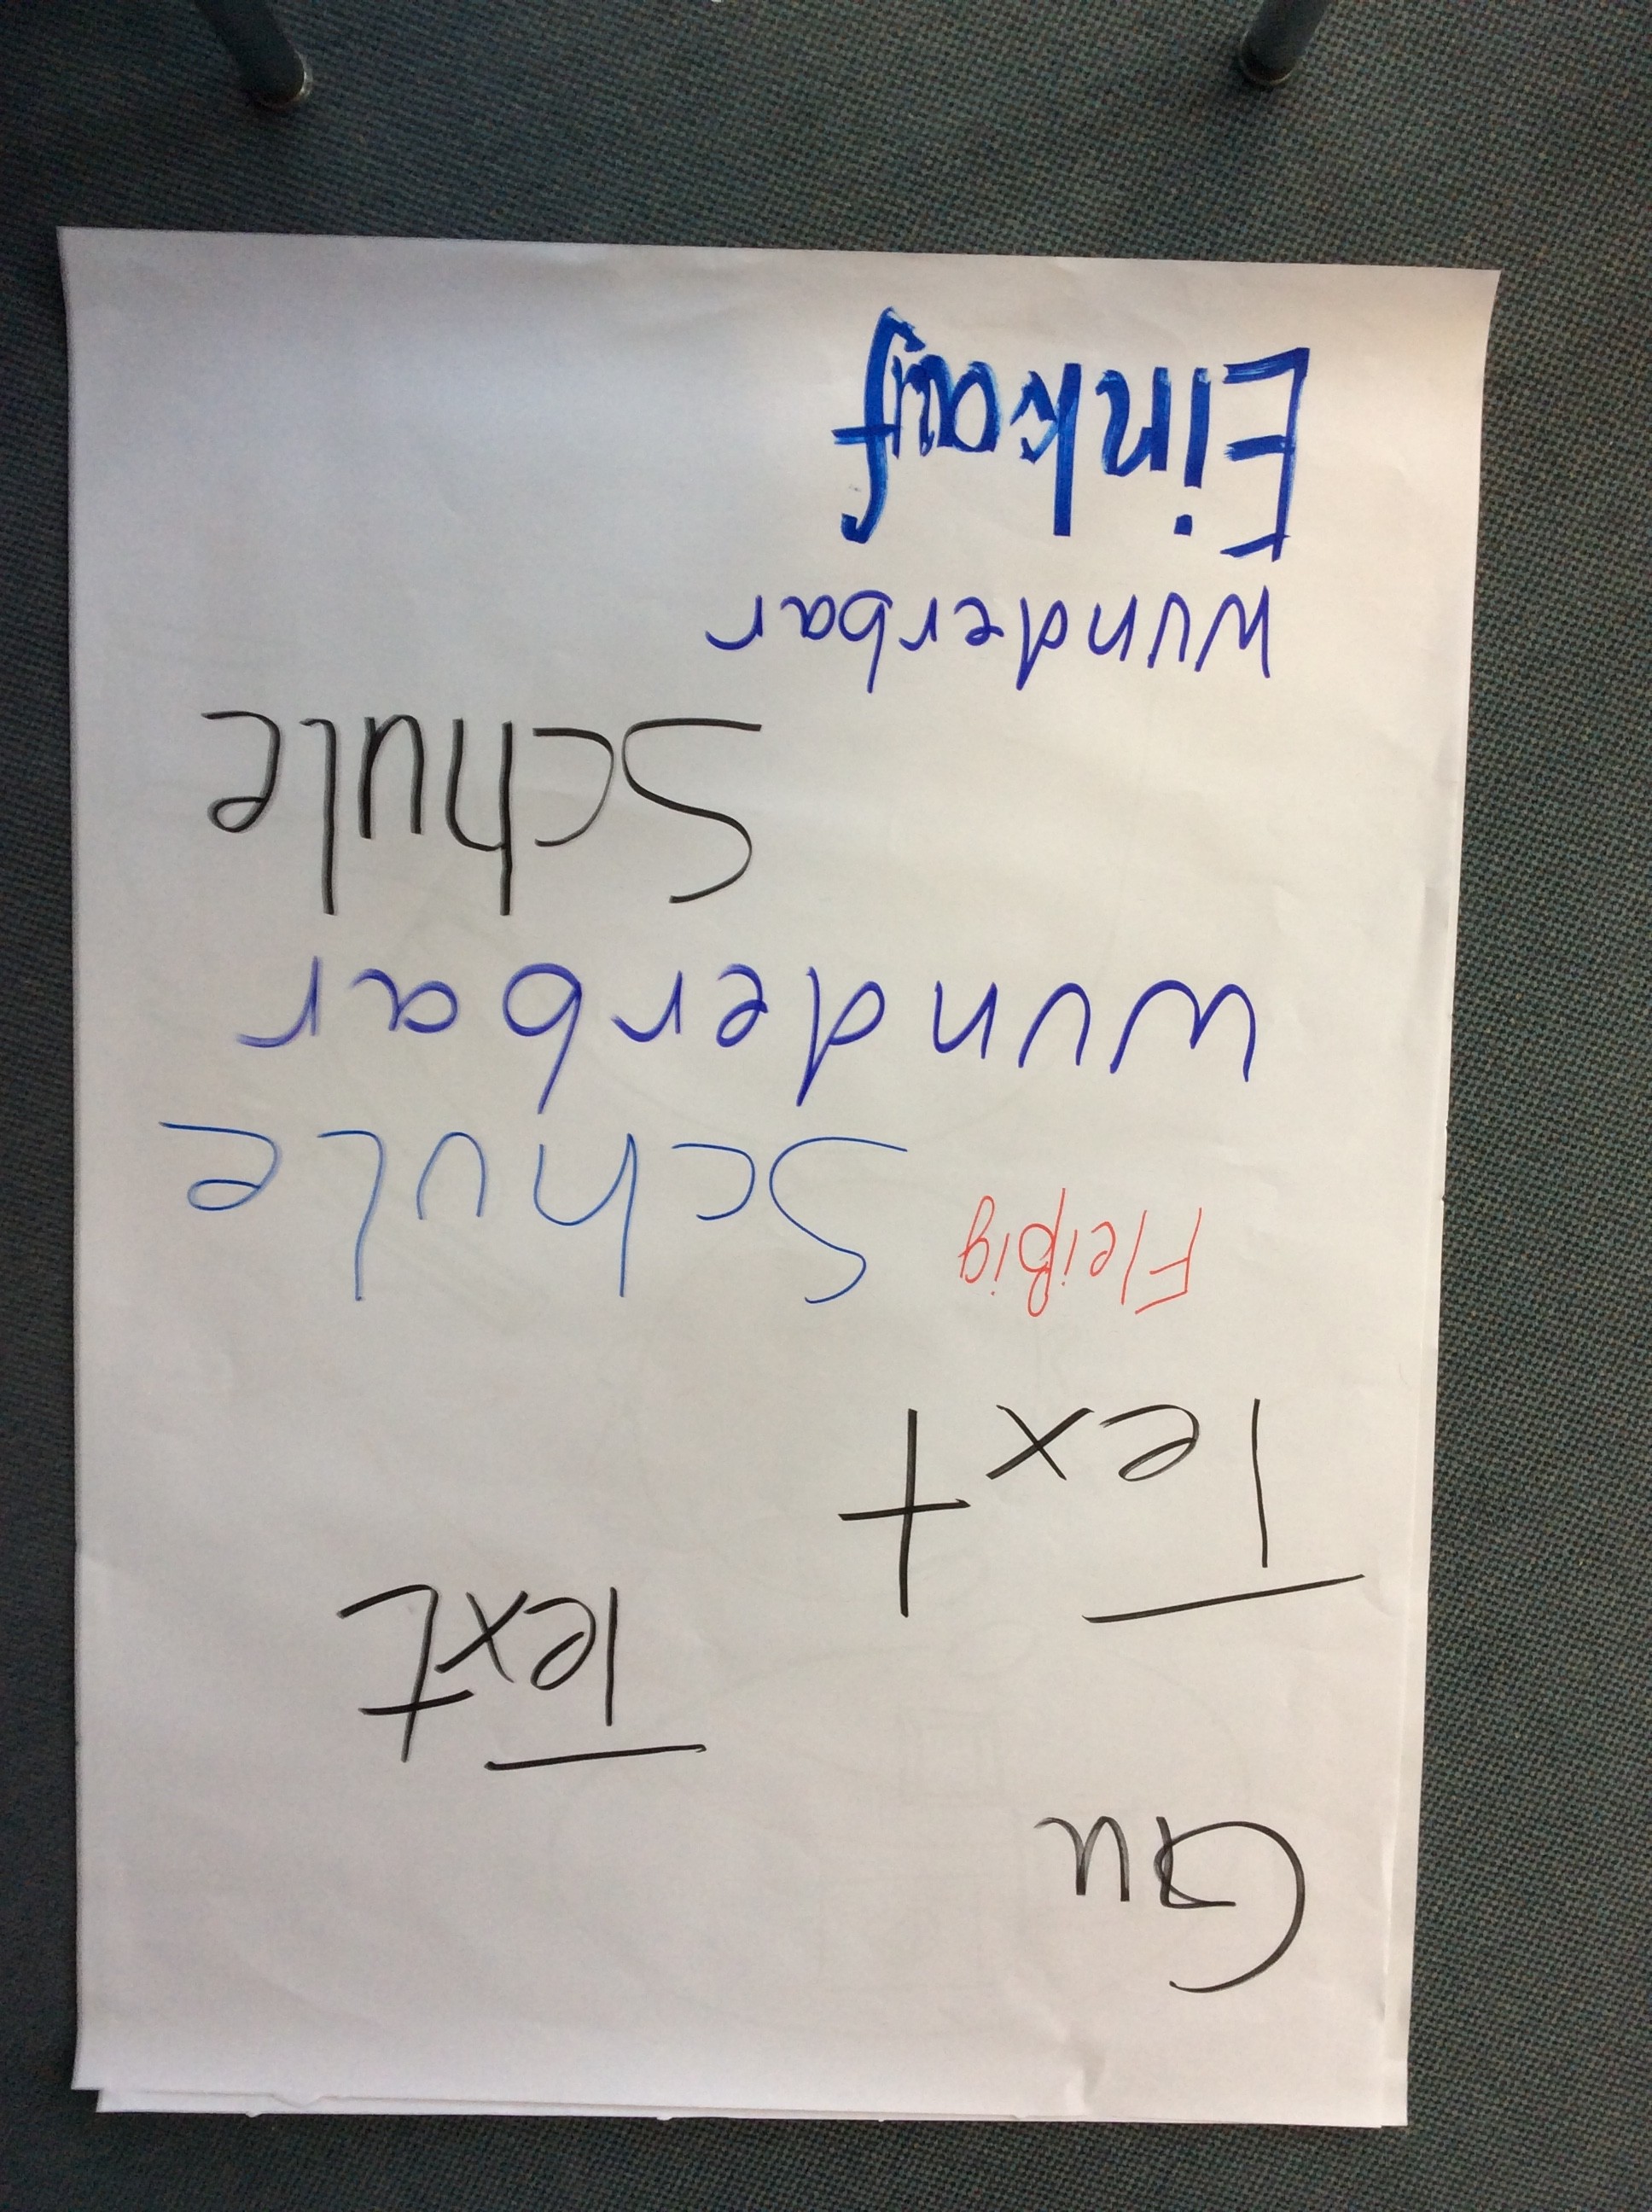 Gu
Text
Text
Fleißig Schule
wunderbar
Schule
wunderbar
Einkauf